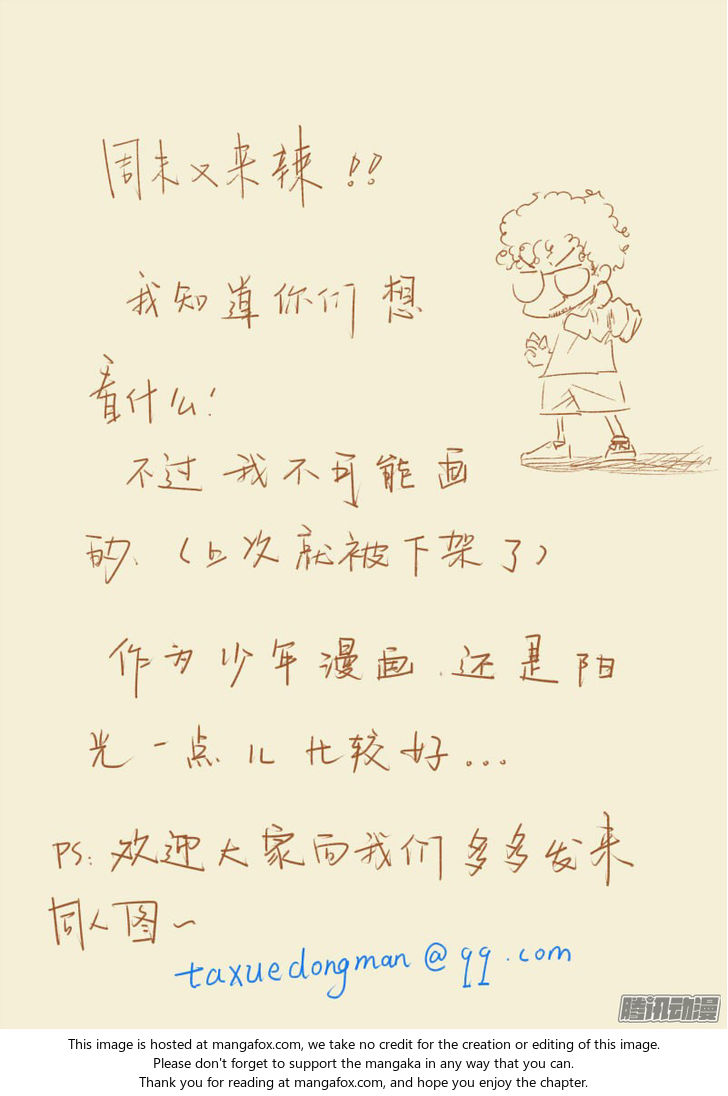 周末又来辣!!
我知道你们想
看什么!
不过我不可能画
的、(上次就被下架了)
作为少年漫画.还是阳
光一点儿比较好...
PS:欢迎大家向我们多多发来
同人图~
taxuedongman@qq.com
腾讯动漫
This image is hosted at mangafox.com, we take no credit for the creation or editing of this image.
Please don't forget to support the mangaka in any way that you can.
Thank you for reading at mangafox.com, and hope you enjoy the chapter.